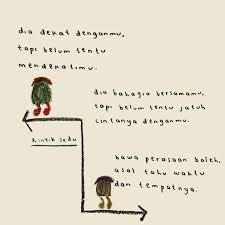 dia dekat denganmu,
tapi belum tentu
mendekatimu.
dia bahagia bersamamu,
tapi belum tentu jatuh
cintanya denganmu.
Rintik Sedu
bawa perasaan boleh,
asal tahu waktu
dan tempatnya.